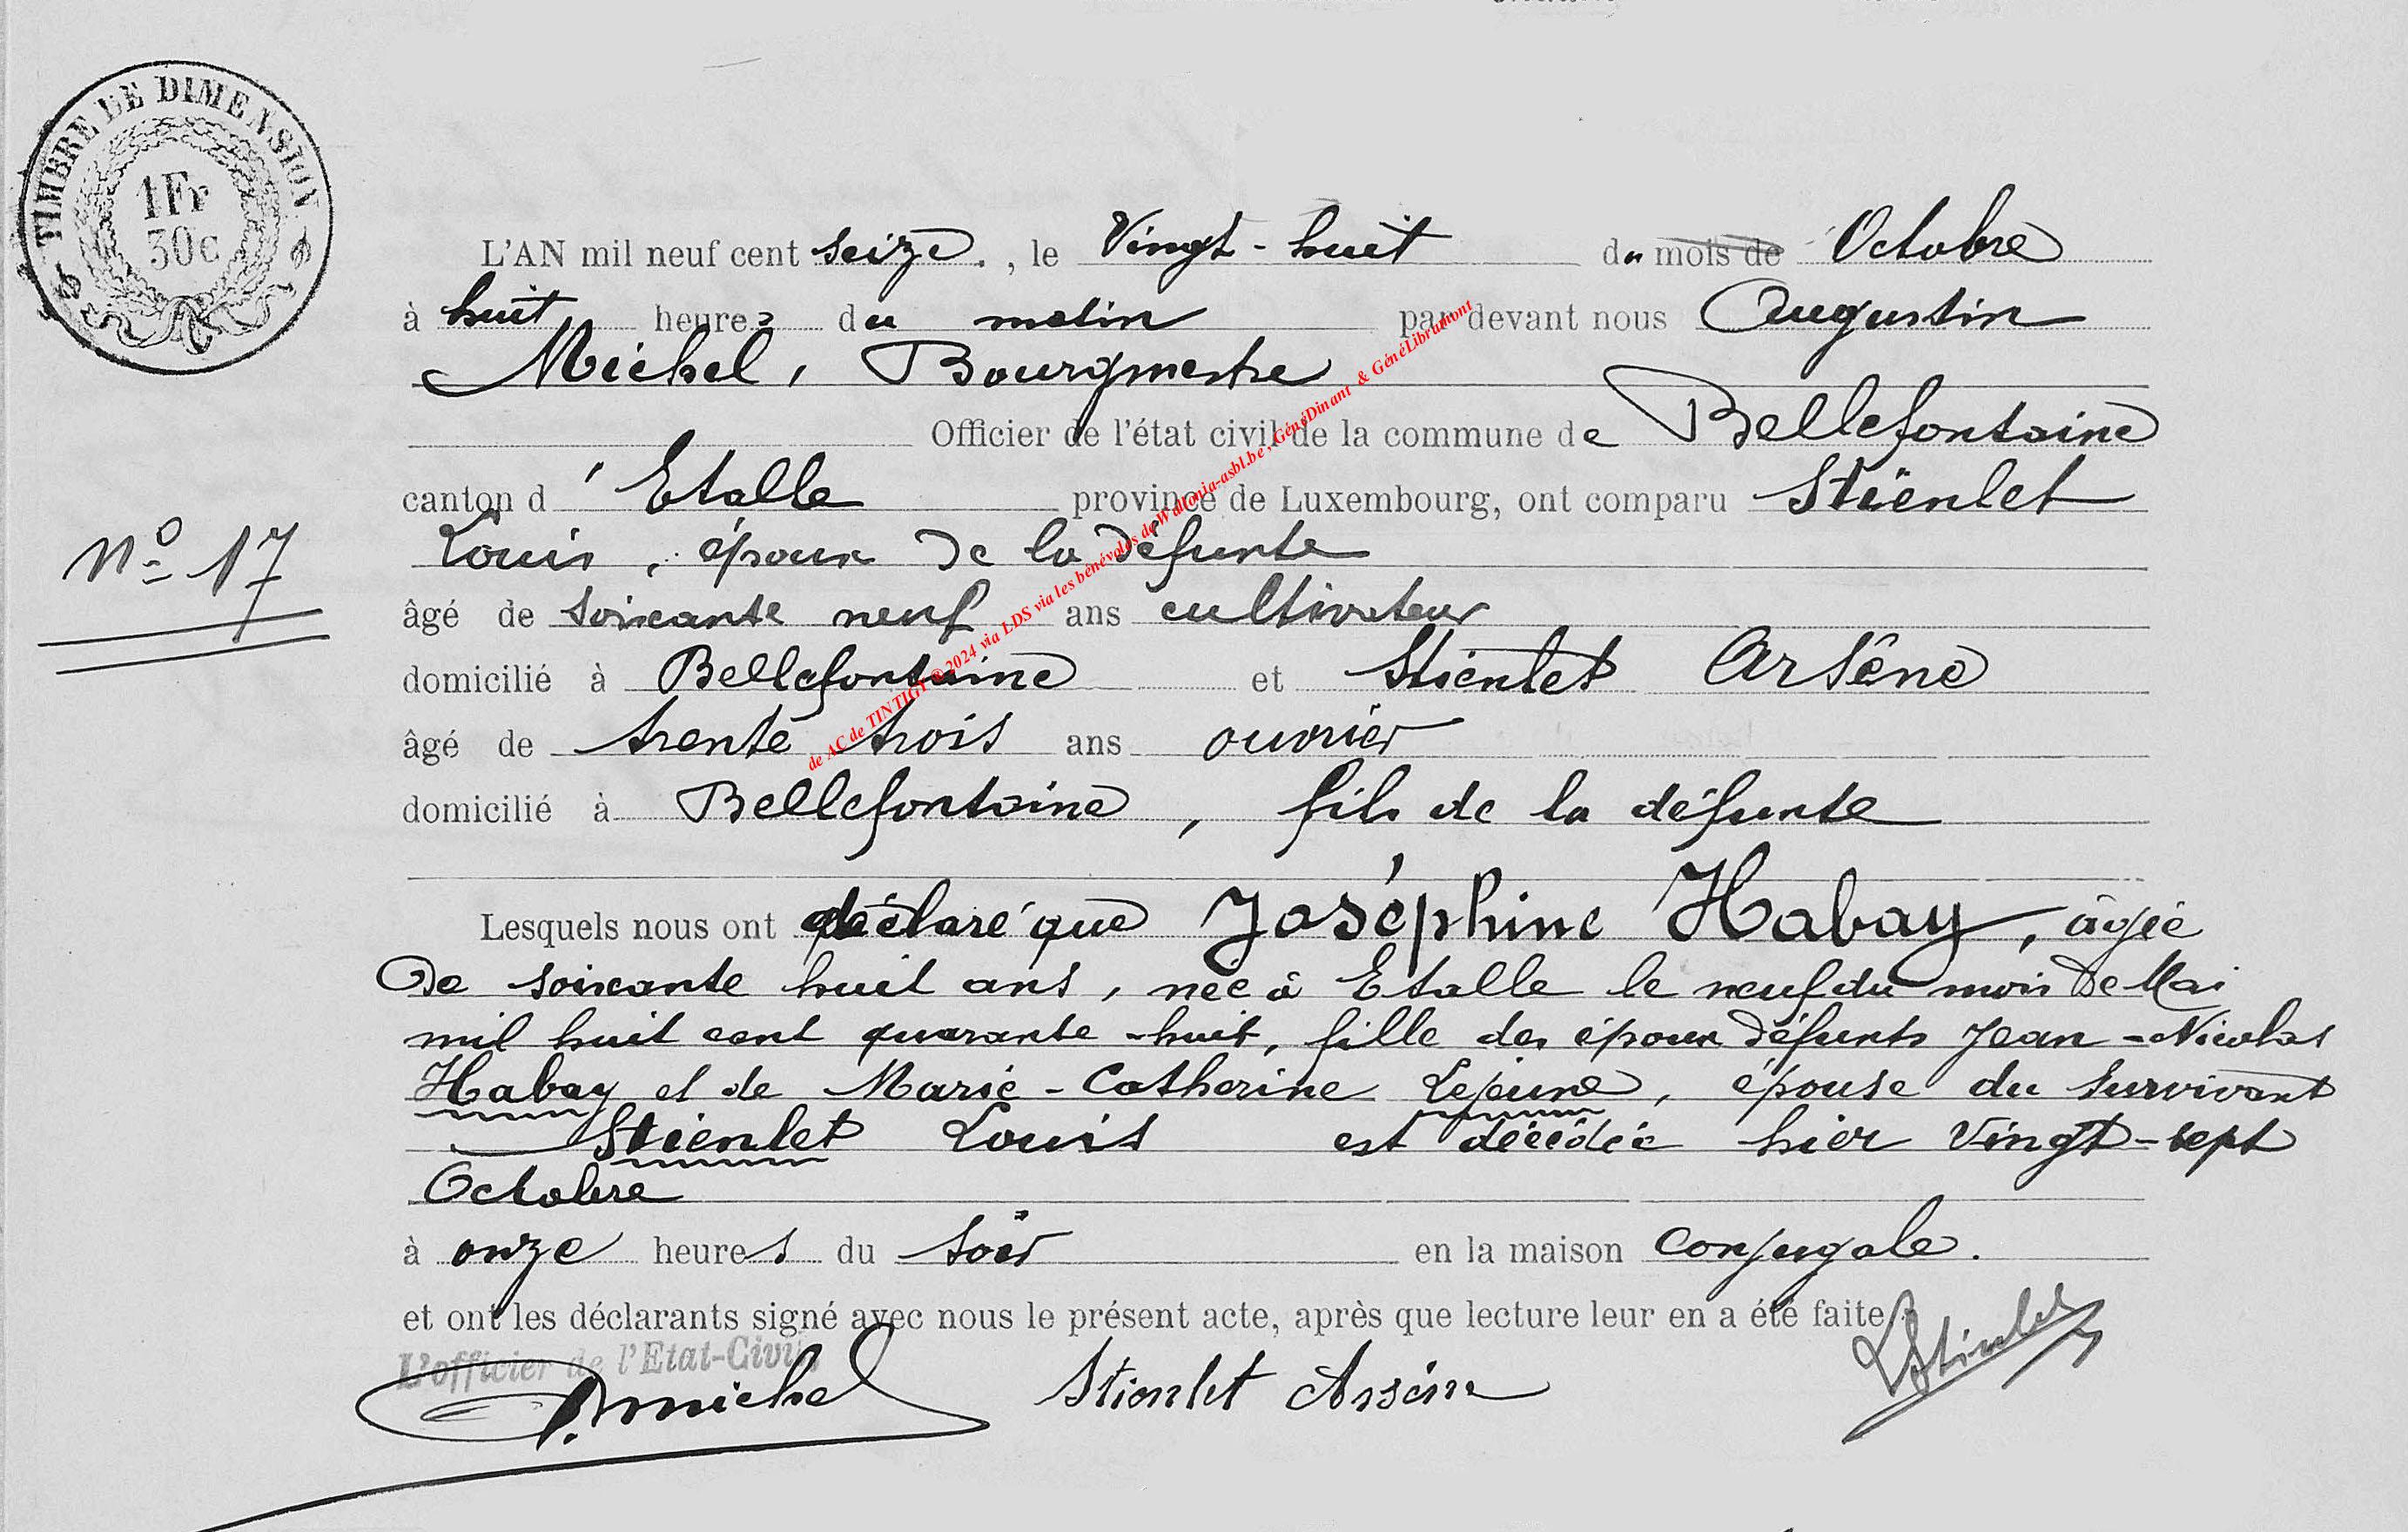 TIMBRE DE DIMENSION
1Fr
30c
L'AN mil neuf cent seize. , le Vingt-huit du mois de Octobre
à huit heures du matin par devant nous Augustin
Michel, Bourgmestre
Officier de l'état civil de la commune de Bellefontaine
canton d'Etalle province de Luxembourg, ont comparu Stiénlet
N° 17
Louis, époux de la défunte
âgé de soixante neuf ans cultivateur
domicilié à Bellefontaine et Stienlet Arsène
âgé de trente trois ans ouvrier
domicilié à Bellefontaine, fils de la défunte
Lesquels nous ont déclaré que Joséphine Habay, âgée
De soixante huit ans, née à Etalle le neuf du mois De Mai
mil huit cent quarante-huit, fille des époux défunts Jean-Nicolas
Habay et de Marie-Catherine Lejeune, épouse du survivant
Stienlet Louis est décédée hier Vingt-sept
Octobre
à onze heures du soir en la maison conjugale.
et ont les déclarants signé avec nous le présent acte, après que lecture leur en a été faite.
L'officier de l'Etat-Civil,
A. michel Stienlet Arsène LStienlet
de AC de TINTIGNY ©2024 via LDS via les bénévoles de Wallonia-asbl.be , GénéDinant & GénéLibramont